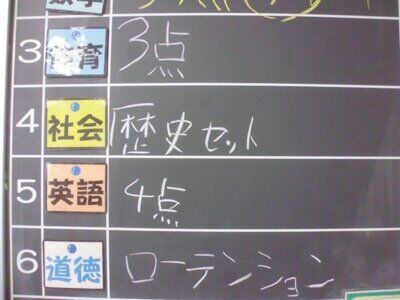 3 体育 3点
4 社会 歴史セット
5 英語 4点
6 道徳 ローテンション